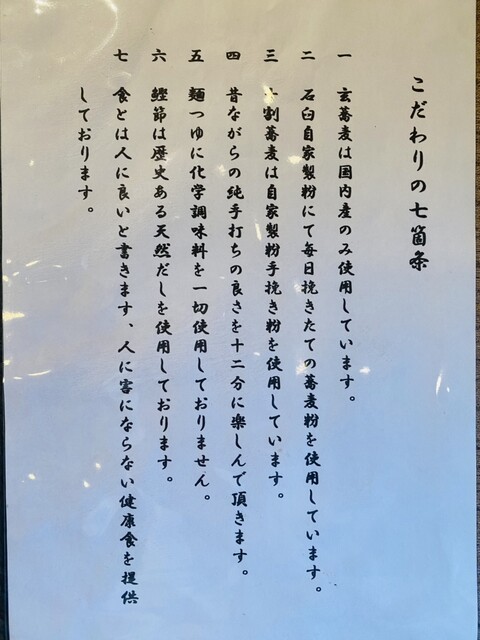 こだわりの七箇条
一 玄蕎麦は国内産のみ使用しています。
二 石臼自家製粉にて毎日挽きたての蕎麦粉を使用しています。
三 十割蕎麦は自家製粉手挽き粉を使用しています。
四 昔ながらの純手打ちの良さを十二分に楽しんで頂きます。
五 麺つゆに化学調味料を一切使用しておりません。
六 鰹節は歴史ある天然だしを使用しております。
七 食とは人に良いと書きます、人に害にならない健康食を提供
しております。